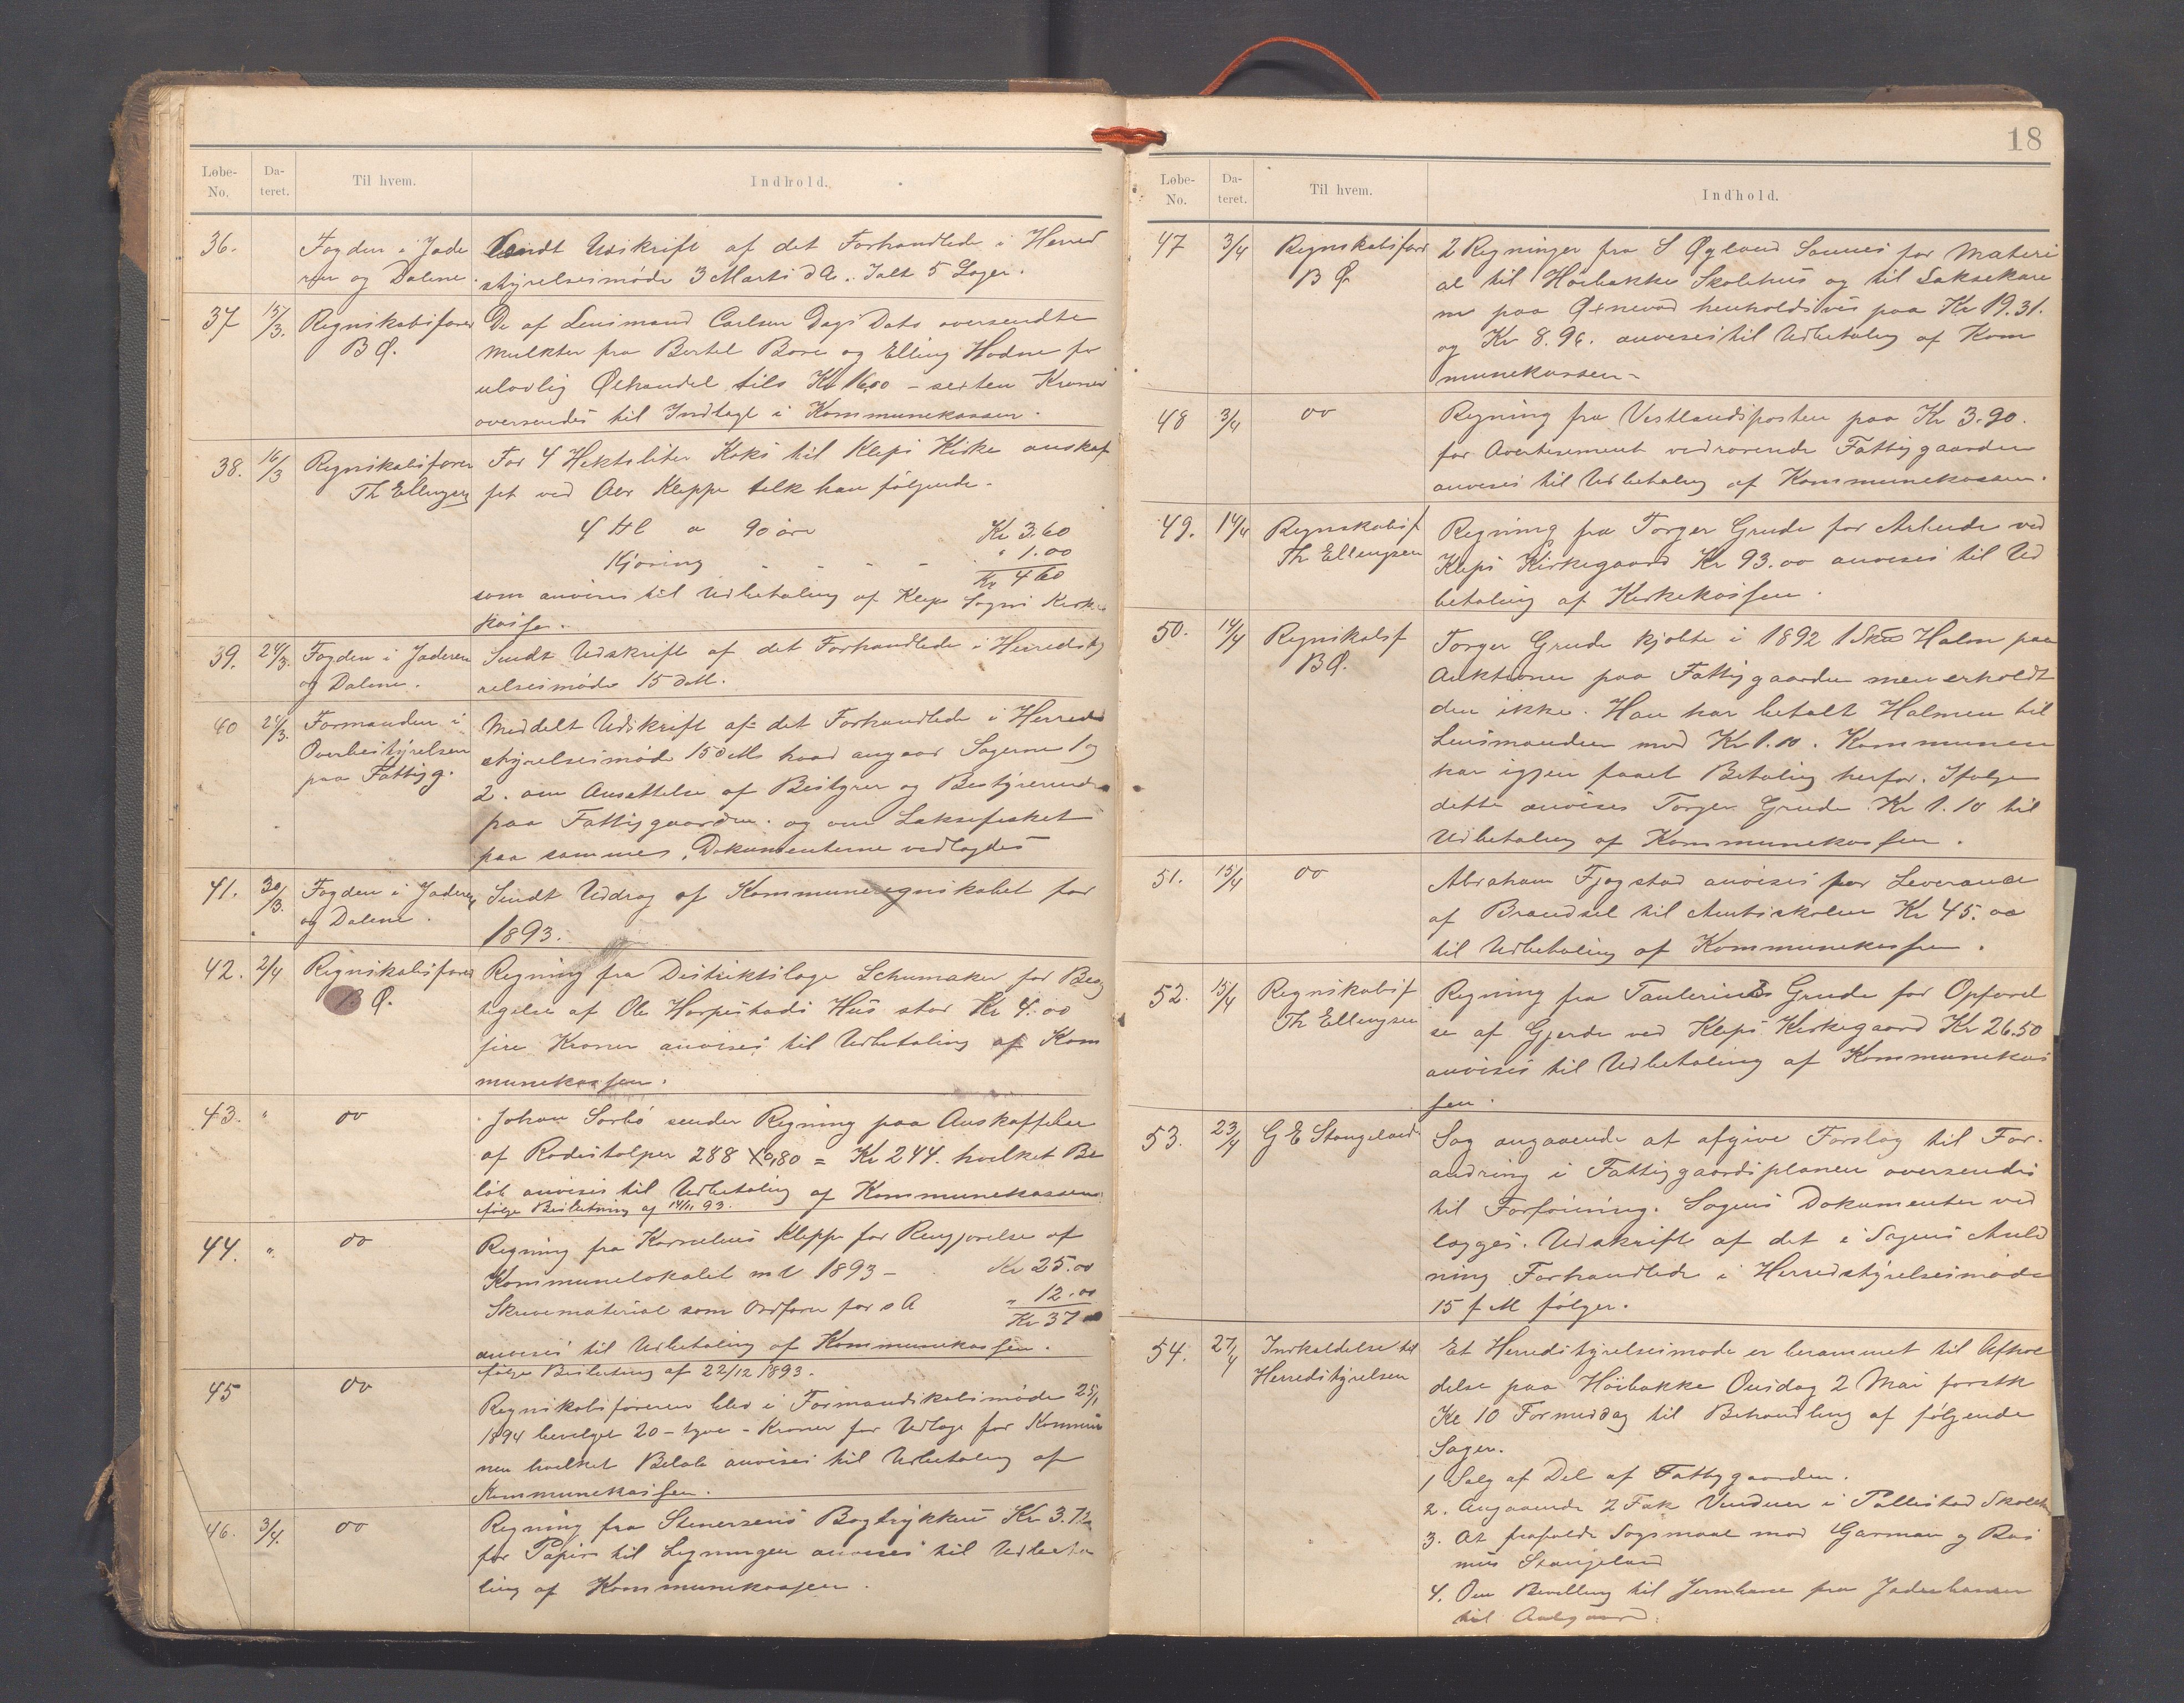 Løbe-No. Da-teret. Til hvem. Indhold.
36. Fogden i Jade Sendt Udskrift af det Forhandlede i Herred
ren og Dalene. styrelsesmöde 3 Marts d A. Ialt 5 Sager.
37 15/3. Regnskabsförer De af Lensmand Carlsen Dags Dato oversendte
B Ø. Mulkter fra Bertel Bore og Elling Hodne for
ulovlig Ölhandel tils Kr 16,00 - sexten Kroner
oversendes til Indtægt i Kommunekassen.
38. 16/3 Regnskabsförer For 4 Hektoliter Koks til Kleps Kirke anskaf
Th Ellingsen fet ved Abr Kleppe tilk han følgende.
4 Hl a 90 öre Kr 3.60
Kjöring - - - - " 1.00
Kr 4 60
som anvises til Udbetaling af Klep Sogns Kirke
kasse.
39. 24/3. Fogden i Jæderen Sendt Udskrift af det Forhandlede i Herredsty
og Dalene. relsesmöde 15 d M.
40 24/3. Formanden i Meddelt Udskrift af det Forhandlede i Herreds
Overbestyrelsen styrelsesmöde 15 d Ms hvad angaar Sagerne 1 og
paa Fattigg. 2. om Ansettelse af Bestyrer og Bestyrerinde
paa Fattiggaarden. og om Laksefisket
paa sammes. Dokumenterne vedlagdes
41. 30/3. Fogden i Jæderen Sendt Uddrag af Kommuneregnskabet for
og Dalene. 1893.
42. 2/4 Regnskabsförer Regning fra Distriktslæge Schumaker for Besig
B Ø. tigelse af Ole Horpestads Hus stor Kr 4.00
fire Kroner anvises til Udbetaling af Kom
munekassen.
43. " do Johan Sörbö sender Regning paa Anskaffelse
af Rodestolper 288 X 0,80 = Kr 244. hvilket Be
löb anvises til Udbetaling af Kommunekassen.
ifølge Beslutning af 14/11 93.
44. " do Regning fra Kornelius Kleppe for Rengjörelse af
Kommunelokalet m V 1893 - Kr 25.00
Skrivematerial som Ordförer for s A " 12.00
Kr 37
anvises til Udbetaling af Kommunekassen.
ifølge Beslutning af 22/12 1893.
45 do Regnskabsföreren blev i Formandskabsmöde 25/1
1894 bevilget 20 - tyve - Kroner for Udlæg for Kommu
nen hvilket Belöb anvises til Udbetaling af
Kommunekassen.
46. 3/4. do Regning fra Stenersens Bogtrykkeri Kr 3.72
for Papir til Ligningen anvises til Udbeta
ling af Kommunekassen.
18
Løbe-No. Da-teret. Til hvem. Indhold.
47 3/4 Regnskabsförer 2 Regninger fra S Øglænd Sannes for Materi
B Ø al til Höibakke Skolehus og til Laksekare
ne paa Øxnevad henholdsvis paa Kr 19.31.
og Kr 8.96. anvises til Udbetaling af Kom
munekassen-
48 3/4 do Regning fra Vestlandsposten paa Kr 3.90.
for Avertisement vedrörende Fattiggaarden
anvises til Udbetaling af Kommunekassen.
49. 14/4 Regnskabsf Regning fra Torger Grude for Arbeide ved
Th Ellingsen Kleps Kirkegaard Kr 93.00 anvises til Ud
betaling af Kirkekassen.
50. 14/4 Regnskabsf Torger Grude kjöbte i 1892 1 Halm paa
B Ø. Auktionen paa Fattiggaarden men erholdt
den ikke. Han har betalt Halmen til
Lensmanden med Kr 1.10. Kommunen
har igjen faaet Betaling herfor. Ifölge
dette anvises Torger Grude Kr 1.10 til
Udbetaling af Kommunekassen.
51. 15/4 do Abraham Fjogstad anvises for Leverance
af Brændsel til Amtsskolen Kr 45.00
til Udbetaling af Kommunekassen.
52. 15/4 Regnskabsf Regning fra Taulerius Grude for Opförel
Th Ellingsen se af Gjerde ved Kleps Kirkegaard Kr 26.50
anvises til Udbetaling af Kommunekas
sen.
53. 23/4 G E Stangeland Sag angaaende at afgive Forslag til For-
andring i Fattiggaardsplanen oversendes
til Forföining. Sagens Dokumenter ved
lægges. Udskrift af det i Sagens Anled
ning Forhandlede i Herredstyrelsesmöde
15 f M følger.
54. 27/4 Indkaldelse til Et Herredstyrelsesmöde er berammet til Afhol
Herredstyrelsen delse paa Höibakke Onsdag 2 Mai förstk
Kl 10 Formiddag til Behandling af følgende
Sager.
1 Salg af Del af Fattiggaarden.
2. Angaaende 2 Fak Vinduer i Pollestad Skolehus
3. At frafalde Sögsmaal mod Garman og Ras
mus Stangeland
4. Om Bevilling til Jernbane fra Jæderbanen
til Aalgaard.